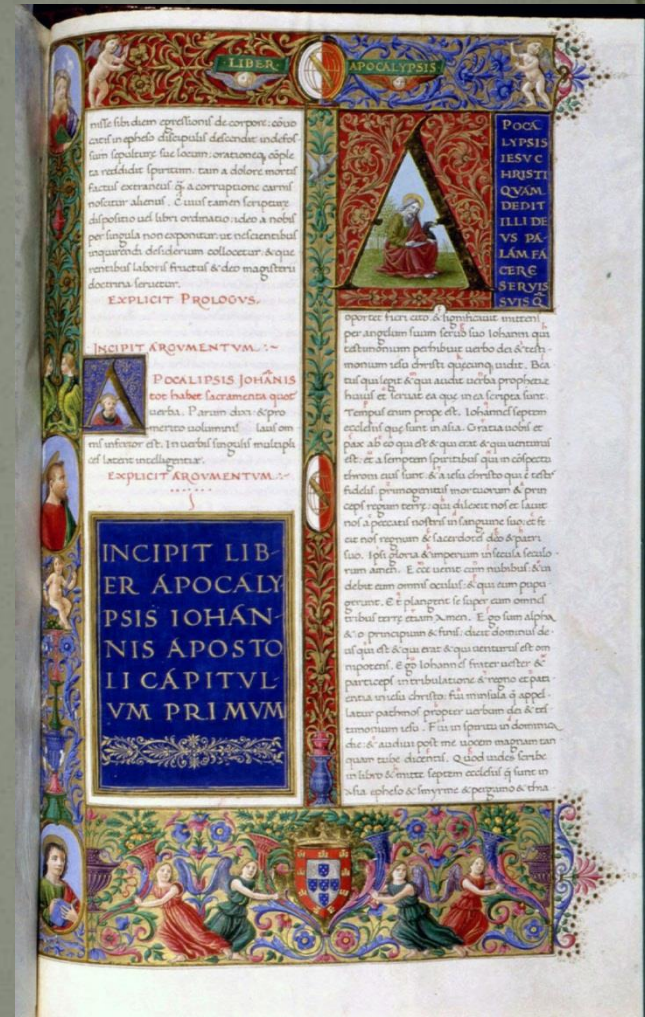 LIBER APOCALYPSIS
nisse sibi diem egressionis de corpore: co͞uo
catis in epheso discipulis descendit in defos-
sum sepulturę suę locum: orationeq; co͞ple
ta reddidit spiritum. tam a dolore mortis
factus extraneus q̃ a corruptione carnis
noscitur alienus. Cuius tamen scripturę
dispositio uel libri ordinatio: ideo a nobis
per singula non exponitur: ut nescientibus
inquirendi desiderium collocetur: & quę
rentibus laboris fructus & deo magisterii
doctrina seruetur.
EXPLICIT PROLOGVS.
INCIPIT ARGVMENTVM.
APOCALIPSIS IOHÃNIS
tot habet sacramenta quot
uerba. Parum dixi: & pro
merito uoluminis laus om
nis inferior est. In uerbis singulis multipli
ces latent intelligentię.
EXPLICIT ARGVMENTVM.
INCIPIT LIB-
ER APOCALY
PSIS IOHAN-
NIS APOSTO
LI CAPITVL-
VM PRIMVM
APOCA
LYPSIS
IESV C
HRISTI
QVAM
DEDIT
ILLI DE
VS PA-
LAM FA
CERE
SERVIS
SVIS Q̃
oportet fieri cito. & significauit mittens
per angelum suum seruo suo Iohanni qui
testimonium perhibuit uerbo dei & testi-
monium iesu christi quęcunq; uidit. Bea
tus qui legit & qui audit uerba prophetię
huius et seruat ea quę in ea scripta sunt.
Tempus enim prope est. Iohannes septem
ecclesiis quę sunt in asia. Gratia uobis et
pax ab eo qui est & qui erat & qui uenturus
est: et a septem spiritibus qui in co͞spectu
throni eius sunt: & a iesu christo qui ẽ testis
fidelis: primogenitus mortuorum & prin
ceps regum terrę: qui dilexit nos et lauit
nos a peccatis nostris in sanguine suo: et fe
cit nos regnum & sacerdotes deo & patri
suo. Ipsi gloria & imperium in secula seculo-
rum amen. Ecce uenit cum nubibus & ui
debit eum omnis oculus: & qui eum pupu
gerunt. Et plangent se super eum omnes
tribus terrę etiam Amen. Ego sum alpha
& o principium & finis: dicit dominus de-
us qui est & qui erat & qui uenturus est om
nipotens. Ego Iohannes frater uester &
particeps in tribulatione & regno et pati
entia in iesu christo: fui in insula q̨ appel-
latur pathmos propter uerbum dei & tes
timonium iesu. Fui in spiritu in dominica
die: & audiui post me uocem magnam tan
quam tubę dicentis. Quod uides scribe
in libro & mitte septem ecclesiis q̨ sunt in
Asia epheso & smyrnę & pergamo & thia